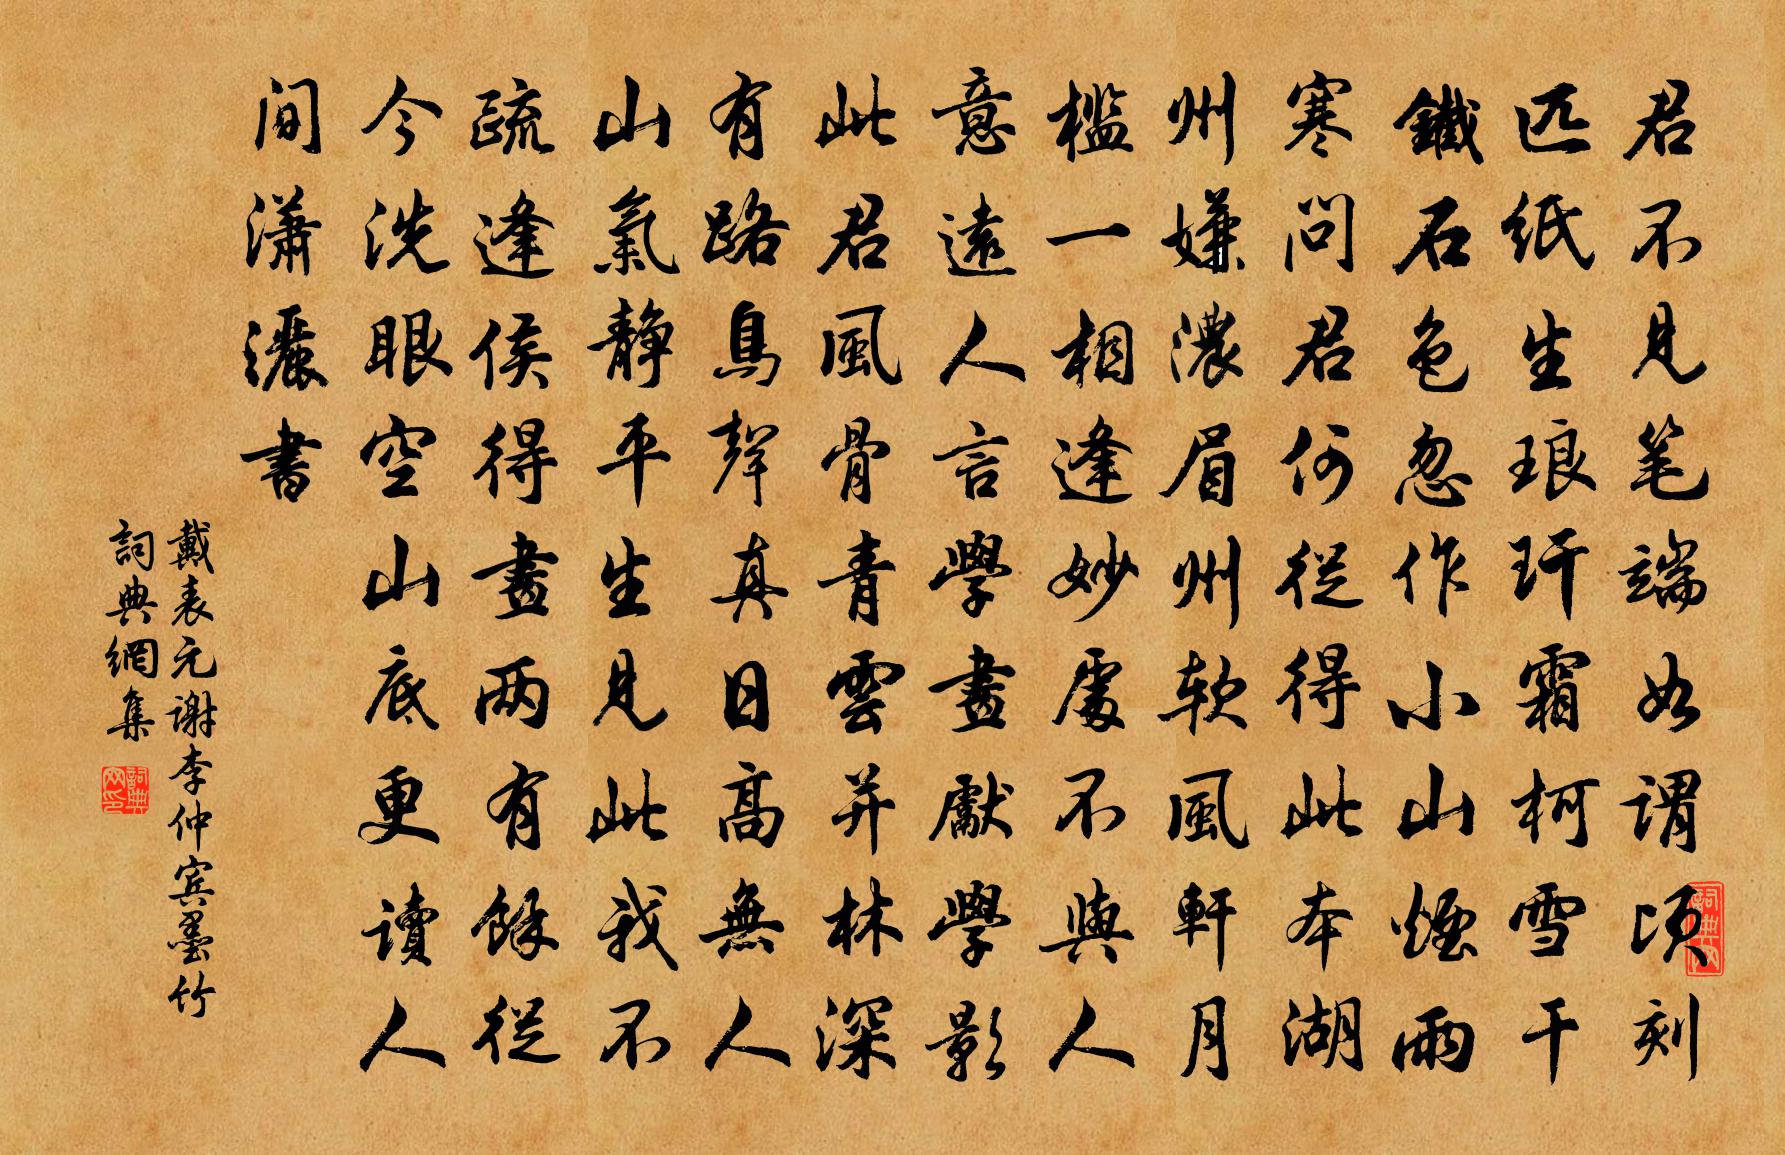 君不見笔端如谓頃刻
匹纸生琅玕霜柯雪干
鐵石色忽作小山煙雨
寒问君何從得此本湖
州嫌濃眉州软風軒月
槛一相逢妙處不與人
意遠人言學畫獻學影
此君風骨青雲并林深
有路鳥聲真日高無人
山氣静平生見此我不
疏逢侯得畫两有餘従
今洗眼空山底更讀人
间瀟灑書
戴表元谢李仲宾墨竹
詞典網集
詞典网印
詞典网